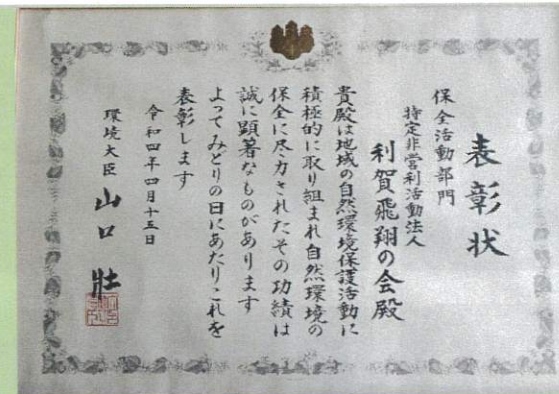 表彰状
保全活動部門
特定非営利活動法人
利賀飛翔の会殿
貴殿は地域の自然環境保護活動に
積極的に取り組まれ自然環境の
保全に尽力されたその功績は
誠に顕著なものがあります
よってみどりの日にあたりこれを
表彰します
令和四年四月十五日
環境大臣 山口壯